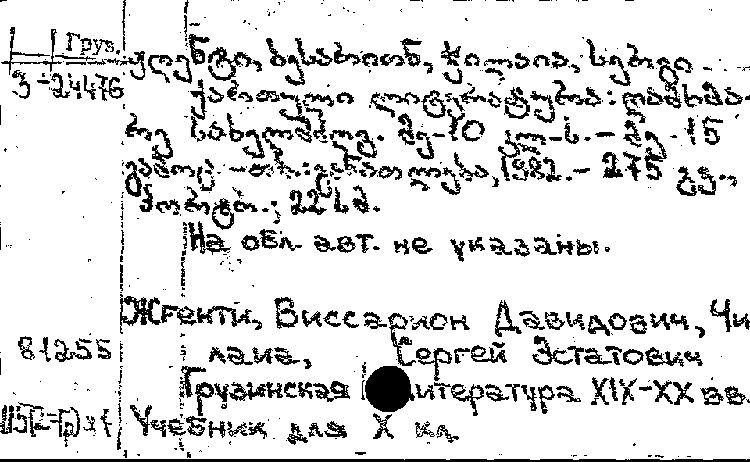 Груз.
3-24476
ჟღენტი, ბესარიონ, ჭილაია, სერგი.
ქართული ლიტერატურა: დამხმა-
რე სახელმძღვ. მე-10 კლ-ს. - მე-15
გამოც. - თბ.: განათლება, 1982. - 275 გვ.,
პორტრ.; 22 სმ.
На обл. авт. не указаны.
Жгенти, Виссарион Давидович, Чи-
81255 лаиа, Сергей Эстатович
Грузинская литература XIX-XX вв.
Учебник для X кл.